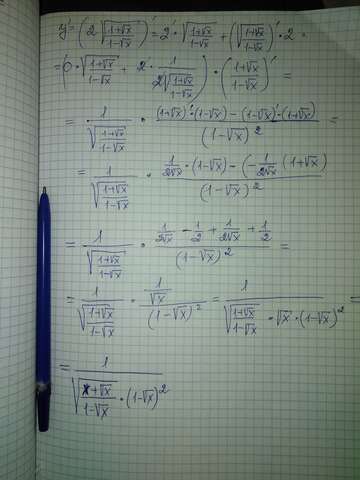 y' = (2√((1+√x)/(1-√x)))' = 2' · √((1+√x)/(1-√x)) + (√((1+√x)/(1-√x)))' · 2 =
= (0 · √((1+√x)/(1-√x)) + 2 · 1/(2√((1+√x)/(1-√x)))) · ((1+√x)/(1-√x))' =
= 1/√((1+√x)/(1-√x)) · ((1+√x)' · (1-√x) - (1-√x)' · (1+√x))/(1-√x)² =
= 1/√((1+√x)/(1-√x)) · (1/(2√x) · (1-√x) - (-1/(2√x) (1+√x))/(1-√x)²
= 1/√((1+√x)/(1-√x)) · (1/(2√x) - 1/2 + 1/(2√x) + 1/2)/(1-√x)² =
= 1/√((1+√x)/(1-√x)) · (1/√x)/(1-√x)² = 1/(√((1+√x)/(1-√x)) · √x · (1-√x)²) =
= 1/(√((x+√x)/(1-√x)) · (1-√x)²)